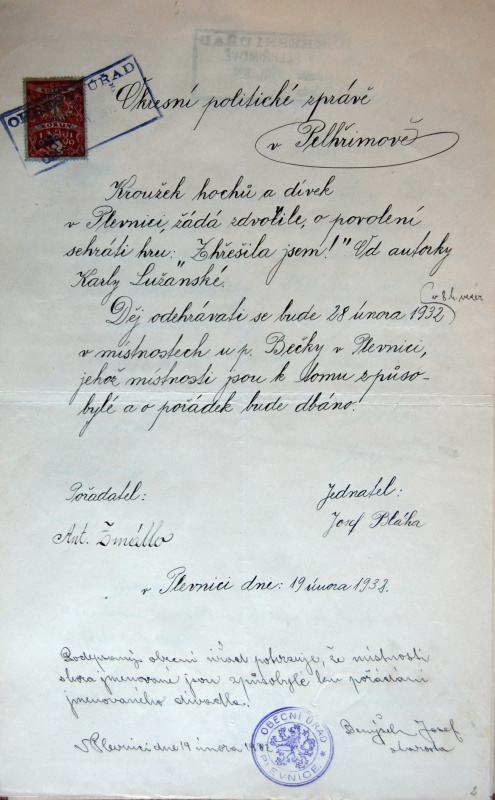 Okresní politické zprávě
v Pelhřimově
Kroužek hochů a dívek
v Plevnici, žádá zdvořile, o povolení
sehráti hru: "Zhřešila jsem!" Od autorky
Karly Lužanské.
(v 8 h. večer)
Děj odehrávati se bude 28 února 1932
v místnostech u p. Bečky v Plevnici,
jehož místnosti jsou k tomu způso-
bylé a o pořádek bude dbáno.
Pořadatel:
Jednatel:
Ant.
Josef Bláha
v Plevnici dne: 19 února 1932.
Podepsaný obecní úřad potvrzuje, že místnosti
shora jmenované jsou způsobylé ku pořádání
jmenovaného divadla.
V Plevnici dne 19 února 1932
OBECNÍ ÚŘAD
PLEVNICE
Josef
starosta
2